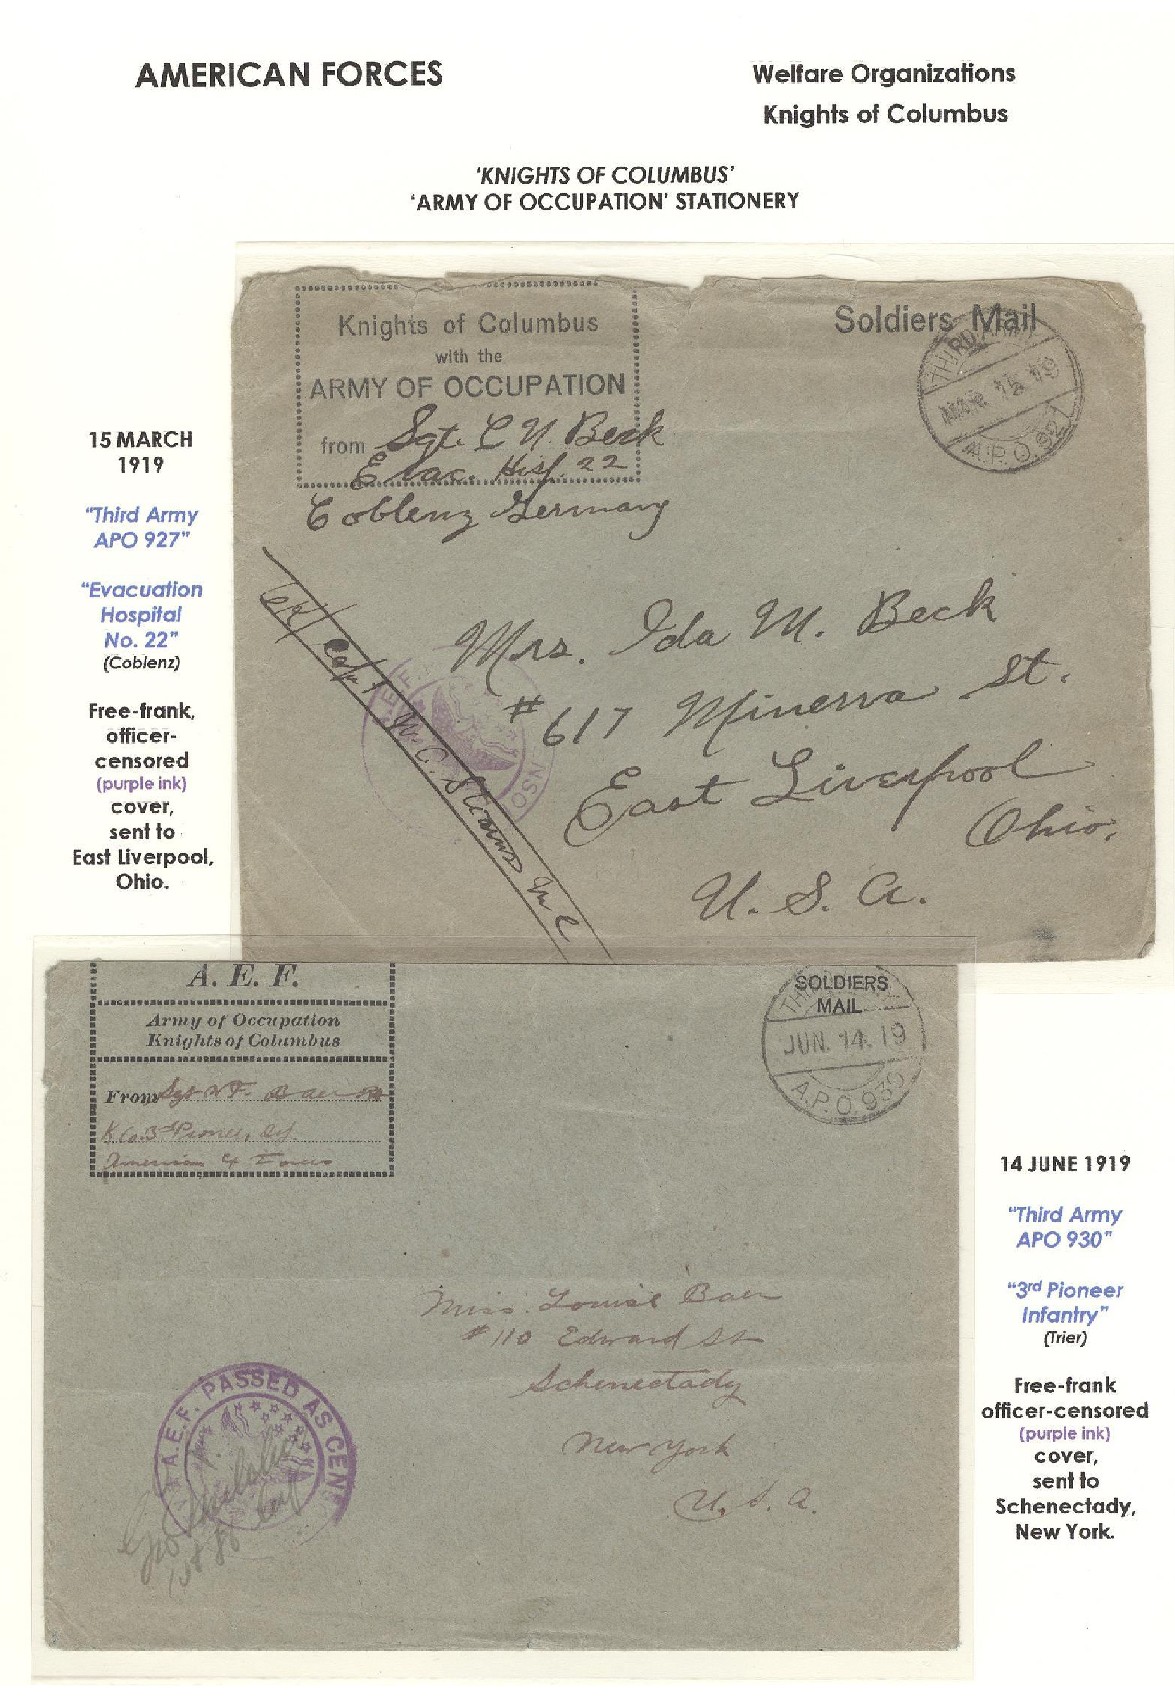 AMERICAN FORCES
Welfare Organizations
Knights of Columbus
'KNIGHTS OF COLUMBUS'
'ARMY OF OCCUPATION' STATIONERY
Knights of Columbus
with the
ARMY OF OCCUPATION
from Sgt. C N. Beck
Evac. Hosp. 22
Coblenz Germany
Soldiers Mail
THIRD ARMY
MAR 15. 19
A.P.O. 927
15 MARCH
1919
"Third Army
APO 927"
"Evacuation
Hospital
No. 22"
(Coblenz)
Free-frank,
officer-
censored
(purple ink)
cover,
sent to
East Liverpool,
Ohio.
Capt W. C. Stearns M C
A.E.F.
Mrs. Ida M. Beck
#617 Minerva St.
East Liverpool
Ohio.
U. S. A.
A. E. F.
Army of Occupation
Knights of Columbus
From Sgt W F. Baer
K Co. 3rd Pioneer Inf.
American Forces
SOLDIERS
MAIL
JUN. 14. 19
A.P.O. 930
14 JUNE 1919
"Third Army
APO 930"
"3rd Pioneer
Infantry"
(Trier)
Free-frank
officer-censored
(purple ink)
cover,
sent to
Schenectady,
New York.
Miss. Louise Baer
#110 Edward St
Schenectady
New York
U. S. A.
A.E.F. PASSED AS CEN